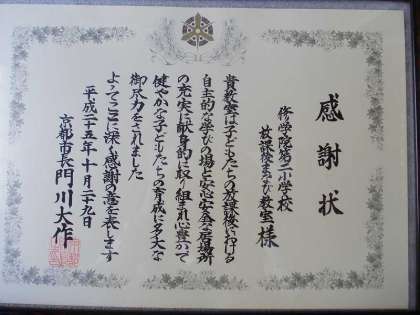 感謝状
修学院第二小学校
放課後まなび教室 様
貴教室は子どもたちの放課後における
自主的な学びの場と安心安全な居場所
の充実に献身的に取り組まれ心豊かで
健やかな子どもたちの育成に多大な
御尽力をされました
よってここに深く感謝の意を表します
平成二十五年十月二十九日
京都市長 門川大作